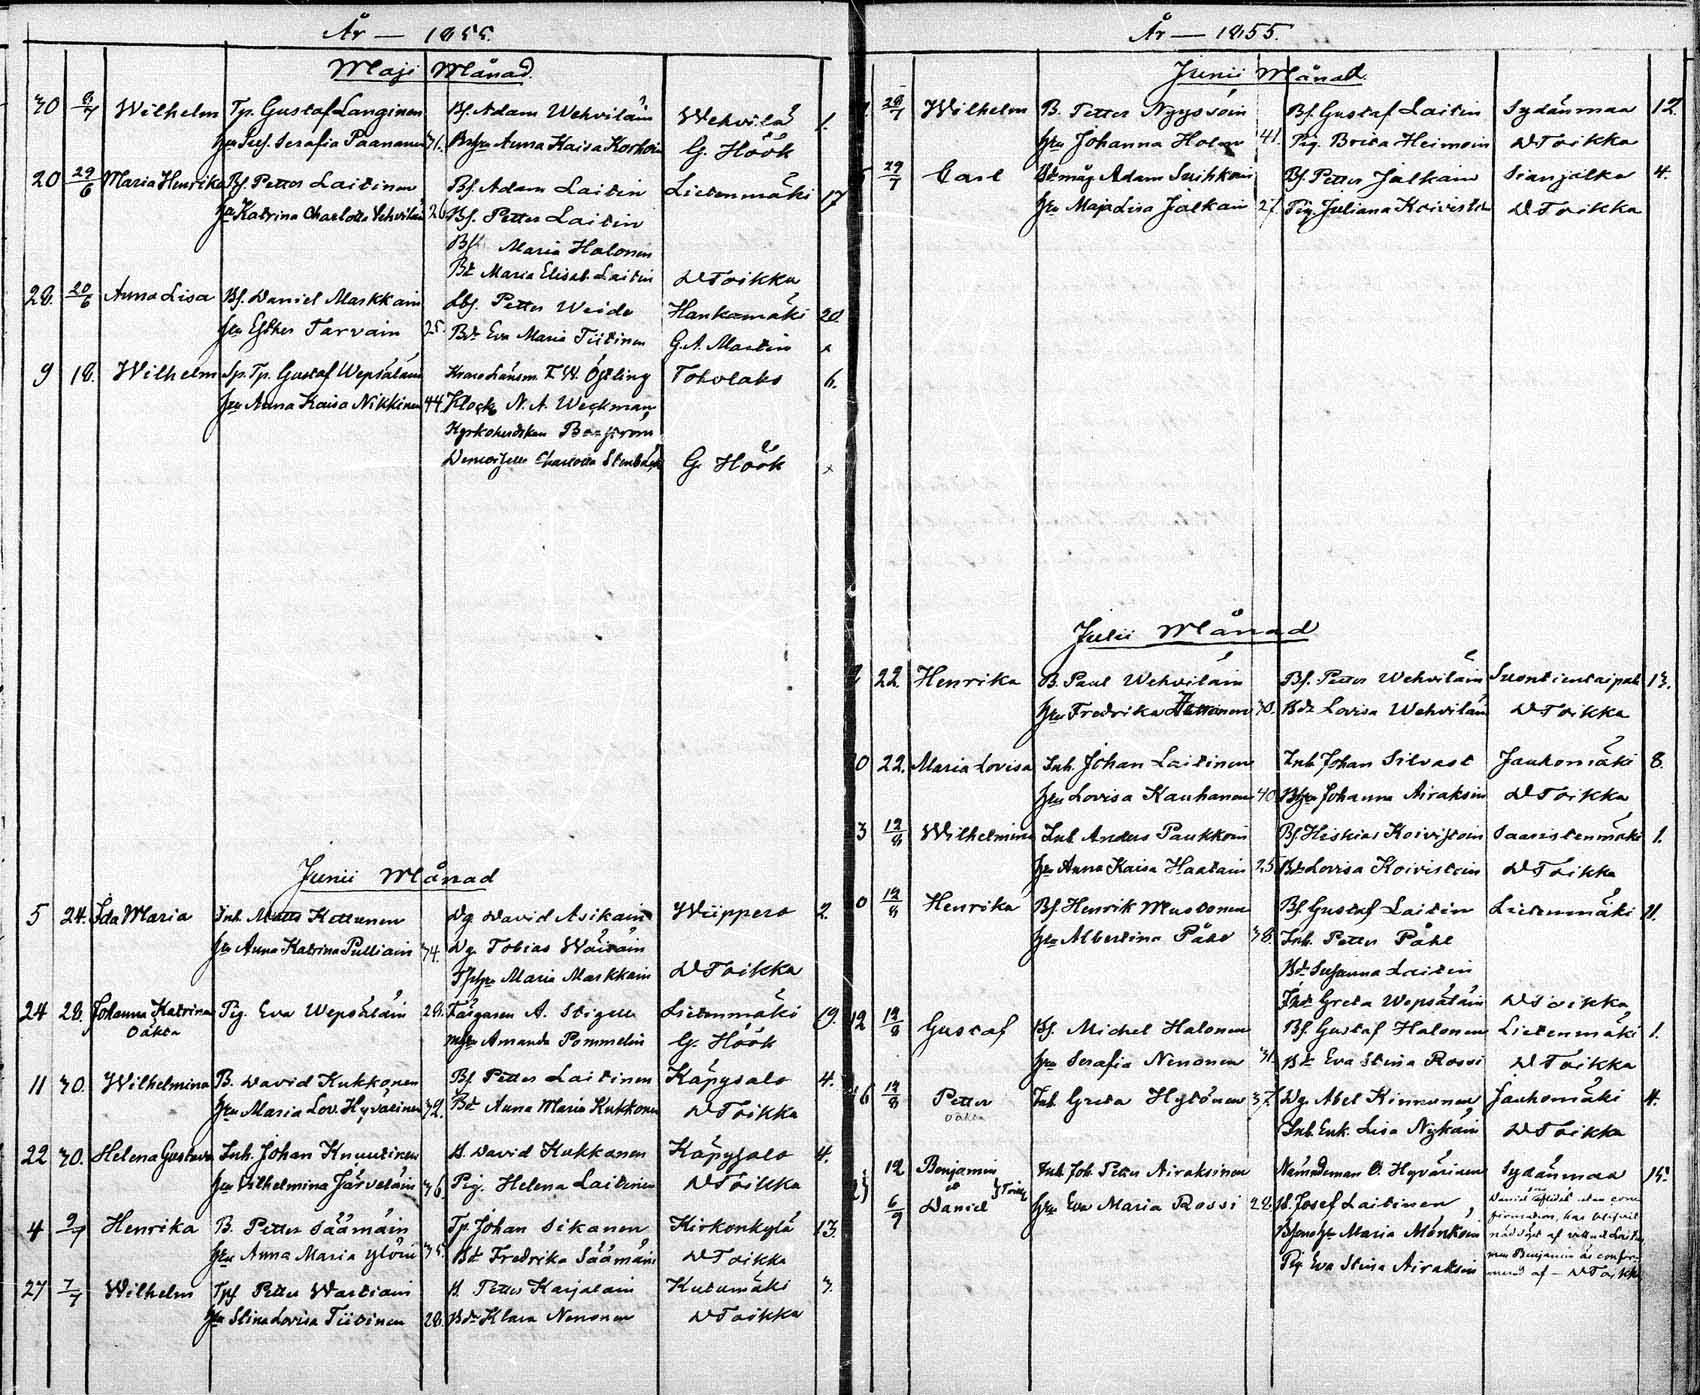 År — 1855.
Maji Månad.
30 8/7 Wilhelm Tp. Gustaf Langinen Bf. Adam Wehviläin Wehvilä 1.
hu Josef. Serafia Paananen 31. Bshu Anna Kaisa Korhoin G. Höök
20 29/6 Maria Henrika Bf. Petter Laitinen Bf. Adam Laitin Lietenmäki 17
hu Katrina Charlotta Vehviläin 26 Bf. Petter Laitin
Bf. Maria Halonen
Bd. Maria Elisab. Laitin DToikka
28. 20/6 Anna Lisa Bf. Daniel Markkain Lbf. Petter Weide Hankamäki 20.
hu Esther Tarvain 25. Bdr Eva Maria Tiitinen G. A. Martin x
9 18. Wilhelm Sp. Tp. Gustaf Wepsäläin Kronolänsm. T. W. Östling Toholaks 6.
hu Anna Kaisa Nikkinen 44. Klock. N. A. Weckman
Kyrkoherdskan Bergström
Demoiselle Charlotta Stenbäck G. Höök x
Junii Månad
5 24. Ida Maria Inh. Matts Kettunen Dg David Asikain Wiippero 2.
hu Anna Katrina Pulliain 34. Dg. Tobias Wäisäin
Tphu Maria Markkain DToikka
24 28. Johanna Katrina Pig. Eva Wepsäläin 28. Färgaren A. Stigell Lietenmäki 19.
Oäkta mhu Amanda Pommelin G. Höök
11 30. Wilhelmina B. David Kukkonen Bf. Petter Laitinen Käpysalo 4.
hu Maria Lov. Hyvärinen 32. Bd. Anna Maria Kukkonen DToikka
22 30. Helena Gustava Inh. Johan Knuutinen B. David Kukkonen Käpysalo 4.
hu Vilhelmina Järveläin 36 Pig. Helena Laitinen DToikka
4 9/7 Henrika B. Petter Säämäin Tp. Johan Sikanen Kirkonkylä 13.
hu Anna Maria Ylöin 35. Bd. Fredrika Säämäin DToikka
27 7/7 Wilhelm Tpf Petter Wartiain B. Petter Karjalain Kutumäki 3.
hu Stina Lovisa Tiitinen 28. Bdr Klara Nenonen DToikka
År — 1855.
Junii Månad.
28/7 Wilhelm B. Petter Nyyssöin Bf. Gustaf Laitin Sydänmaa 12.
hu Johanna Holm 41. Pig. Brita Heimoin DToikka
29/7 Carl Bdmåg Adam Suihkoin Bf. Petter Jalkain Sianjalka 4.
hu Maja Lisa Jalkain 27. Pig. Juliana Koivistoin DToikka
Julii Månad
22 Henrika B. Paul Wehviläin Bf. Petter Wehviläin Suontientaipale 13.
hu Fredrika Hettonen 30. Bdr Lovisa Wehviläin DToikka
0 22. Maria Lovisa Inh. Johan Laitinen Inh. Johan Silvast Jauhomäki 8.
hu Lovisa Kauhanen 40 Bshu Johanna Airaksin DToikka
3 12/8 Wilhelmina Inh. Anders Paukkoin Bf. Hiskias Koivistoin Saaristenmäki 1.
hu Anna Kaisa Haatain 25 Bdr Lovisa Koivistoin DToikka
0 12/8 Henrika Bf. Henrik Mustonen Bf. Gustaf Laitin Lietenmäki 11.
hu Albertina Påhl 38. Inh. Petter Påhl
Bdr Susanna Laitin
Bdr Greta Wepsäläin DToikka
12 12/8 Gustaf Bf. Michel Halonen Bf. Gustaf Halonen Lietenmäki 1.
hu Serafia Nenonen 31. Bd. Eva Stina Rossi DToikka
16 12/8 Petter Inh. Greta Hytönen 37. Dg. Abel Kinnunen Jauhomäki 4.
Oäkta Inh. Enk. Lisa Nykäin DToikka
12 Benjamin Inh. Joh. Petter Airaksinen Nämndeman O. Hyvärinen Sydänmaa 15.
6/7 Daniel } Tvill. hu Eva Maria Rossi 28. B. Josef Laitinen Daniel aflidit utan con-
Bfsonshu Maria Mönkoin firmation, har blifvit nöddöpt af Laiti-
Pig Eva Stina Airaksin nen Benjamin är confir-
merad af — DToikka